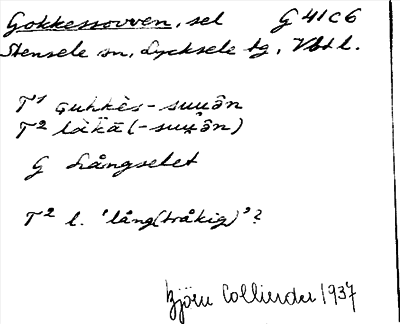 Gokkessovven, sel G 41 C 6
Stensele sn, Lycksele tg, Vbt l.
T¹ guhkès-suuôn
T² làkā (-suuôn)
G Långselet
T² l. 'lång(tråkig)'?
Björn Collinder 1937